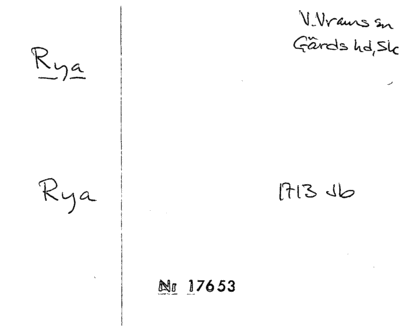 Rya
V. Vrams sn
Gärds hd, Sk
Rya
1713 Jb
Nr 17653